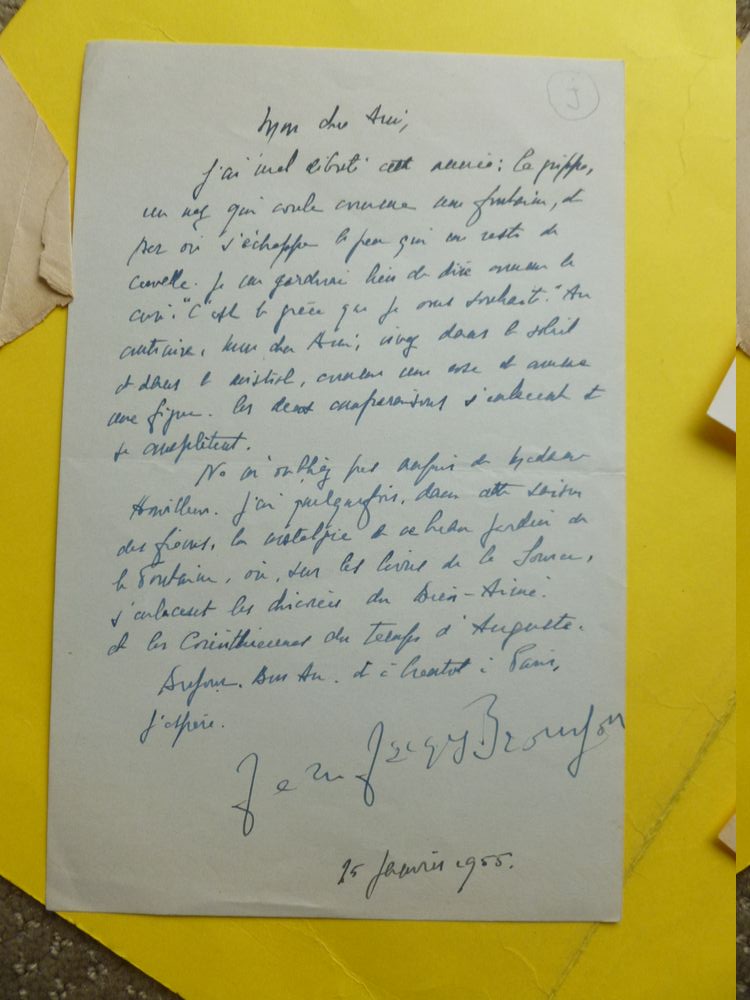 J
Mon cher Ami,
J'ai mal débuté cette année : la grippe,
un nez qui coule comme une fontaine, et
par où s'échappe le peu qui me reste de
cervelle. Je me garderai bien de dire comme le
curé : "C'est la grâce que je vous souhaite." Au
contraire, mon cher Ami, vivez dans le soleil
et dans le mistral, comme une rose et comme
une figue. Les deux comparaisons s'enlacent et
se complètent.
Ne m'oubliez pas auprès de Madame
J'ai quelquefois, dans cette saison
des frimas, la nostalgie de ce beau jardin de
la Fontaine, où, sur les livres de la Source,
s'enlacent les chicorées du Bien-Aimé.
et les Corinthiennes du temps d'Auguste.
Bon An. et à bientôt à Paris,
j'espère.
Jean Jacques Brousson
25 Janvier 1955.